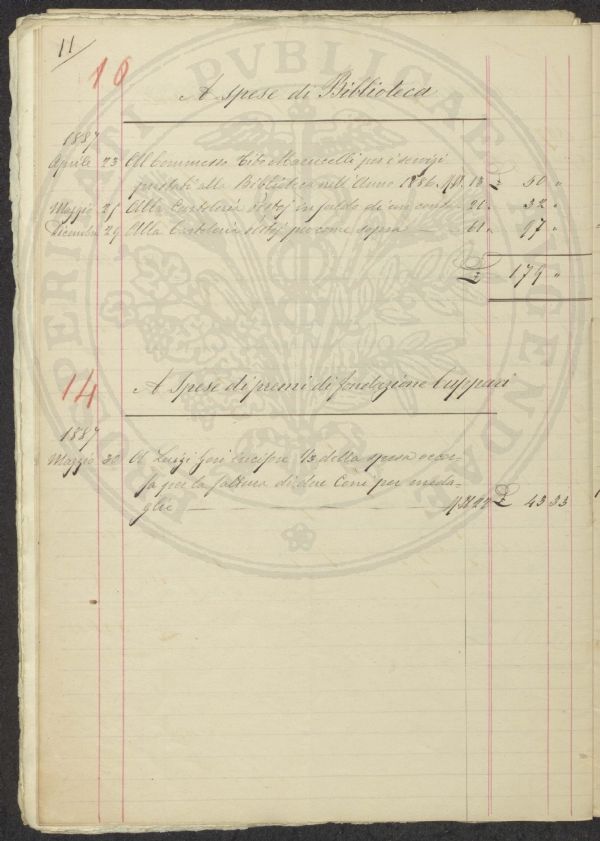 11
10
A spese di Biblioteca
1887
Aprile 23 Al Commesso Tito Marucelli per i servizi
prestati alla Biblioteca nell'Anno 1886. 18 £ 50 "
Maggio 25 Alla Cartoleria in saldo di un conto 20 " 32 "
Dicembre 29 Alla Cartoleria per come sopra — 61 " 97 "
£ 179 "
14
A Spese di premi di fondazione Cuppari
1887
Maggio 30 A Luigi Gori incisore 1/3 della spesa occor-
sa per la fattura di due Coni per meda-
glie — 22 £ 43 33
PROSPERITATI PVBLICAE AVGENDAE